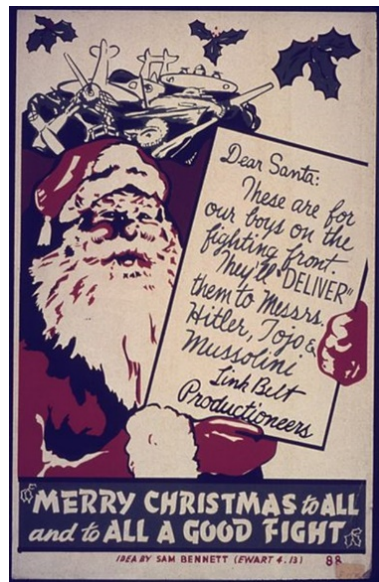 Dear Santa:
These are for
our boys on the
fighting front.
They'll "DELIVER"
them to Messrs.
Hitler, Tojo &
Mussolini
Link Belt
Productioneers
"MERRY CHRISTMAS to ALL
and to ALL A GOOD FIGHT"
IDEA BY SAM BENNETT (EWART 4.13)
88